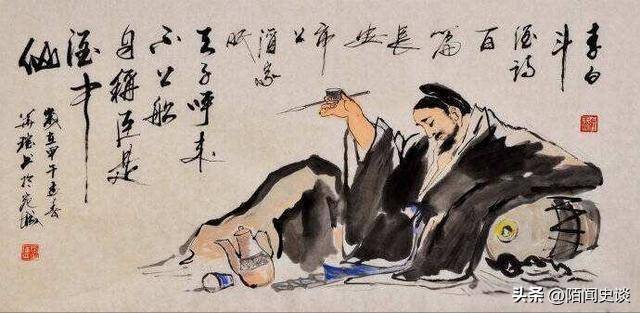 李白
斗
酒詩
百
篇
長
安
市
上
酒家
眠
天子呼来
不上船
自稱臣是
酒中
仙
歲在甲午春
头条 @陌闻史谈